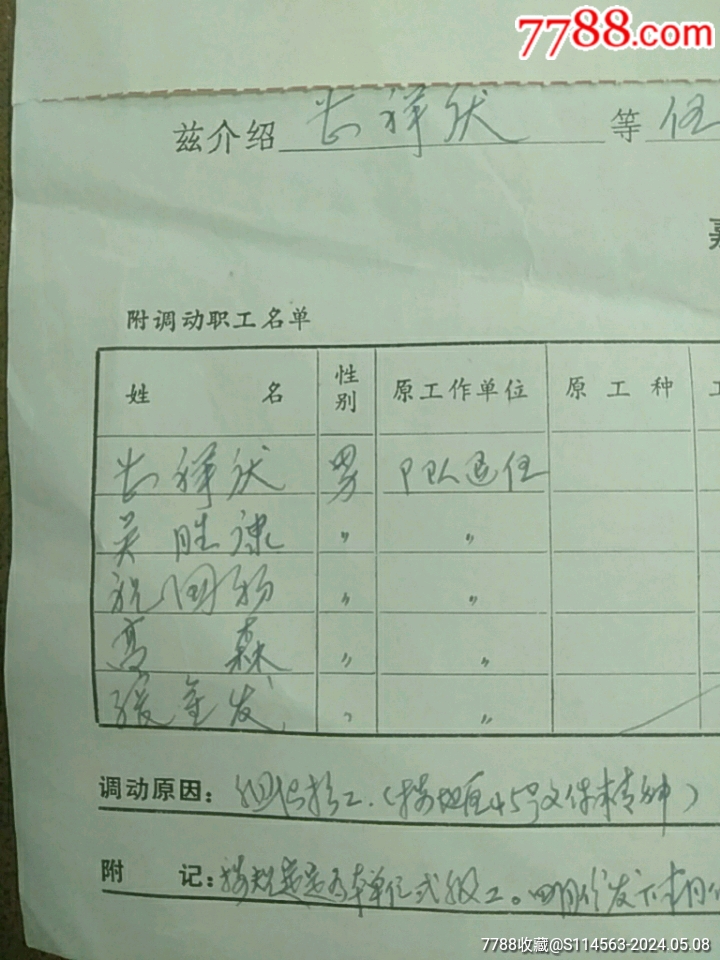 7788.com
兹介绍 祥伏 等 伍
附调动职工名单
姓 名 性别 原工作单位 原工种
祥伏 男 P队退伍
吴胜康 〃 〃
祝国 〃 〃
高森 〃 〃
张金发 〃 〃
调动原因: 组织招工.(按 45号文件精神)
附 记: 本单位式级工。四月份发
7788收藏@S114563-2024.05.08